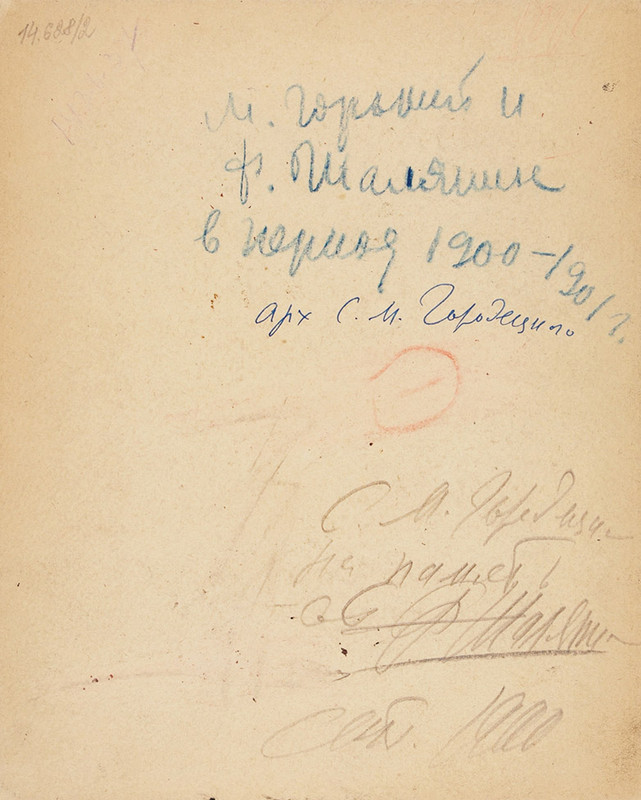 14.688/2
М. Горький и
Ф. Шаляпин
в период 1900-1901 г.
арх С. М. Городецкого
С. М. Городецк
на память
Ф Шаляпин
сент. 1900